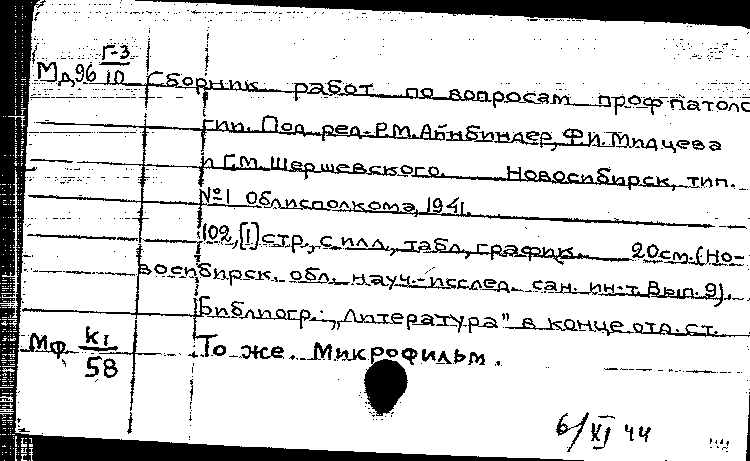 Г-3
Мд96 10 Сборник работ по вопросам профпатоло
гии. Под ред. Р.М. Айнбиндер, Ф.И. Мидцева
и Г.М. Шершевского. Новосибирск, тип.
№1 Облисполкома, 1941.
102, [1] стр., с илл., табл., график. 20см. (Но-
восибирск. обл. науч.-исслед. сан. ин-т. Вып. 9).
Библиогр.: „Литература" в конце отд. ст.
Мф. К1/58 То же. Микрофильм.
6/XI 44